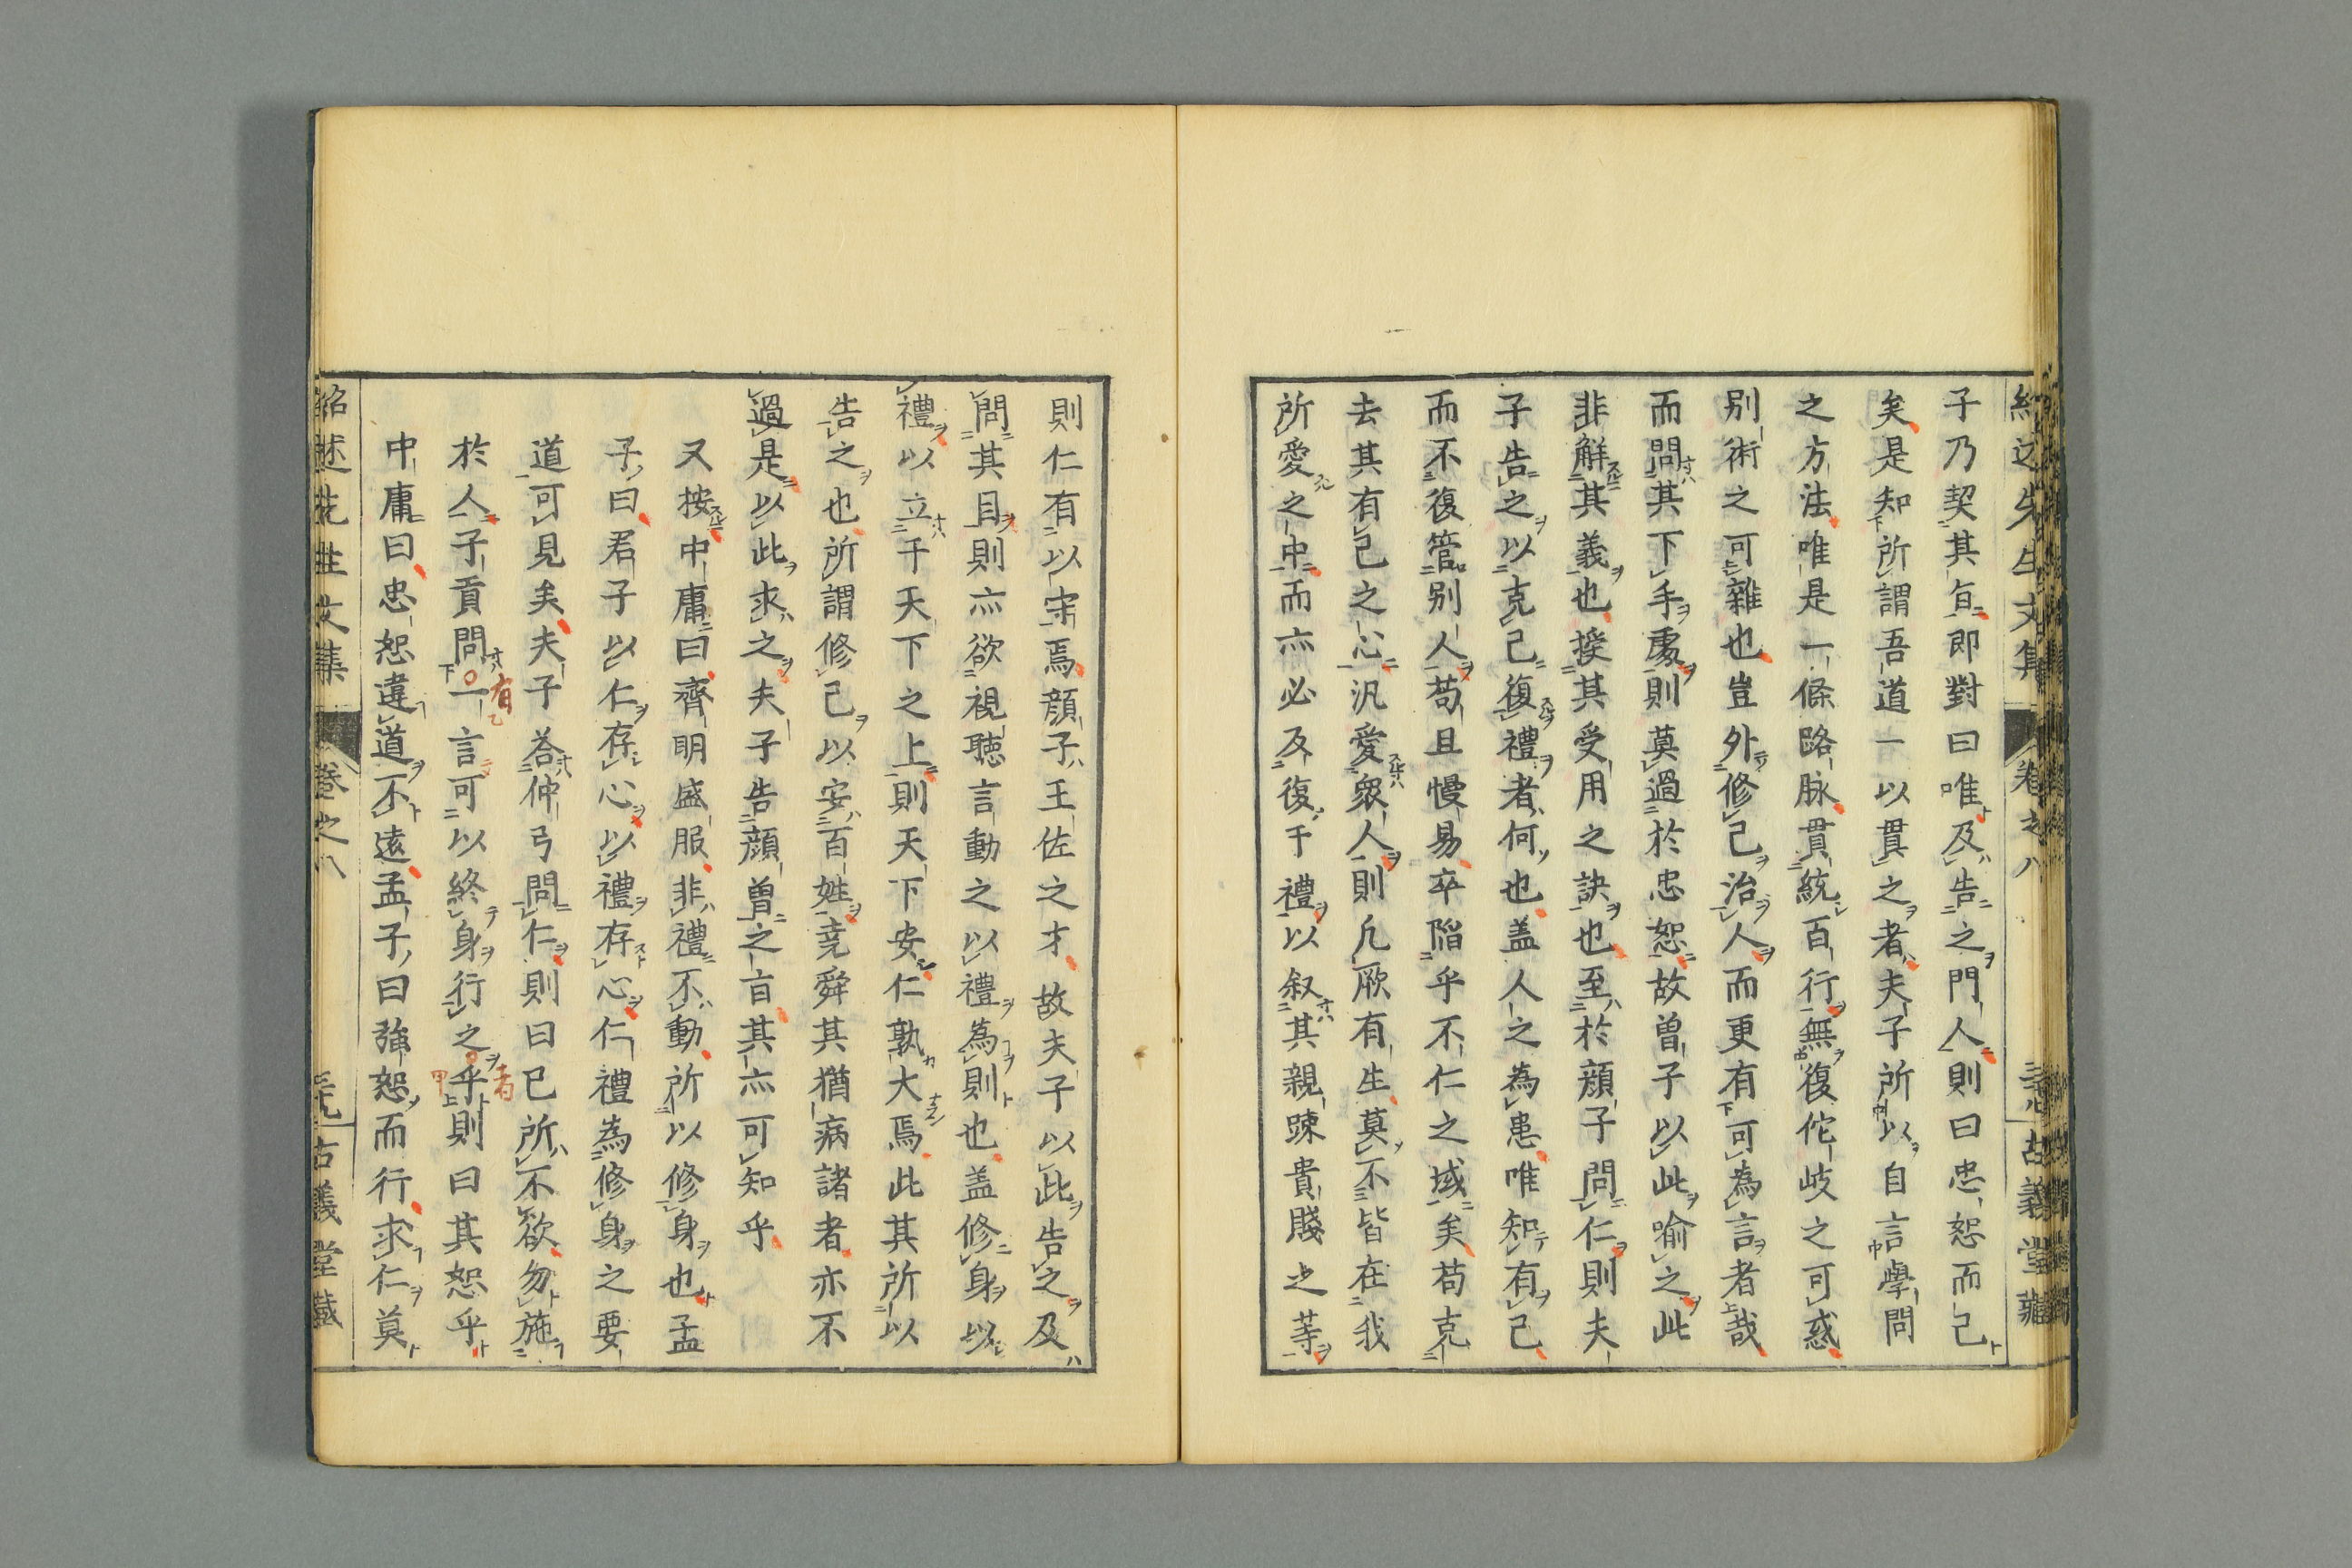 子乃契其旨即對曰唯及告之門人則曰忠恕而己
矣是知所謂吾道一以貫之者夫子所以自言學問
之方法唯是一條路脉貫統百行無復佗岐之可惑
别術之可雜也豈外修己治人而更有可為言者哉
而問其下手處則莫過於忠恕故曽子以此喻之此
非解其義也授其受用之訣也至於顔子問仁則夫
子告之以克己復禮者何也盖人之為患唯知有己
而不復管别人苟且慢易卒陷乎不仁之域矣苟克
去其有己之心汎愛衆人則凢厥有生莫不皆在我
所愛之中而亦必反復于禮以叙其親踈貴賤之等
卷之八
古義堂藏
則仁有以宋焉顔子王佐之才故夫子以此告之及
問其目則亦欲視聴言動之以禮為則也盖修身以
禮以立于天下之上則天下安仁孰大焉此其所以
告之也所謂修己以安百姓尭舜其猶病諸者亦不
過是以此求之夫子告顔曽之旨其亦可知乎
又按中庸曰齊明盛服非禮不動所以修身也孟
子曰君子以仁存心以禮存心仁禮為修身之要
道可見矣夫子荅仲弓問仁則曰已所不欲勿施
於人子貢問一言可以終身行之乎則曰其恕乎
有
者
中庸曰忠恕違道不遠孟子曰強恕而行求仁莫
紹述先生文集
卷之八
古義堂藏